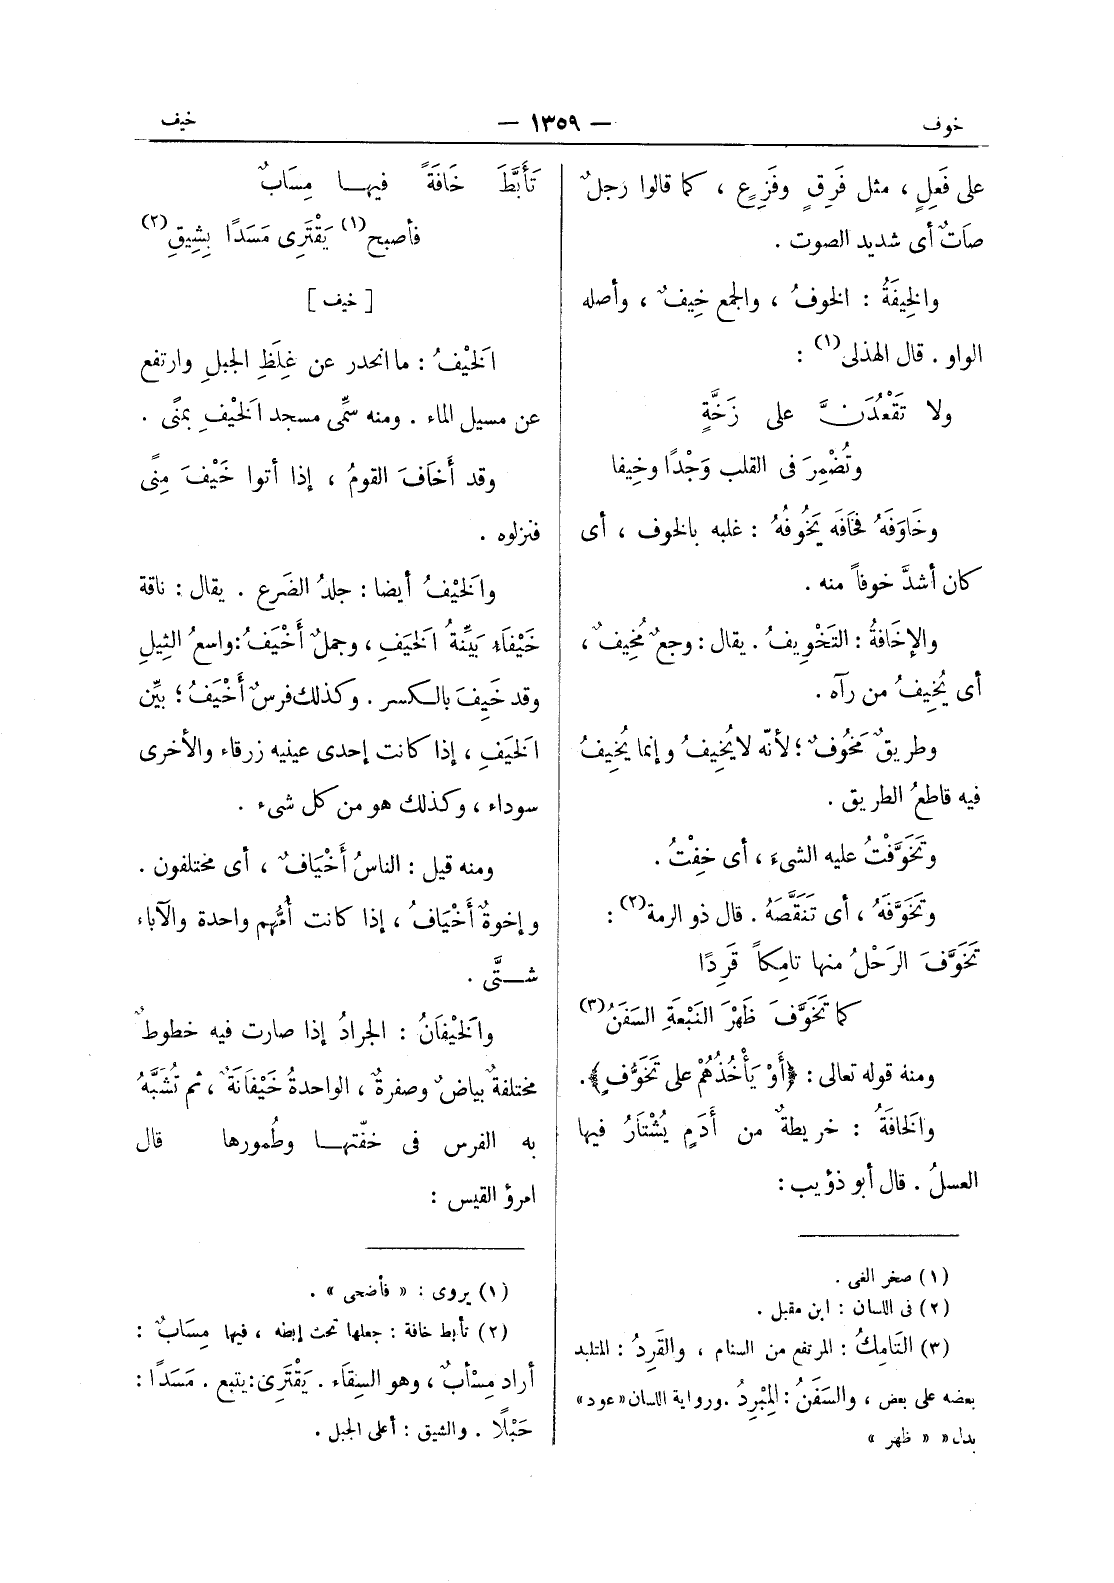 خوف — ١٣٥٩ — خيف
على فَعِلٍ ، مثل فَرِقٍ وفَزِعٍ ، كما قالوا رَجلٌ
صَاتٌ أى شديد الصوت .
والخِيفَةُ : الخوفُ ، والجمع خِيفٌ ، وأصله
الواو . قال الهذلى(١) :
ولا تَقْعُدَنَّ على زَخَّةٍ
وتُضْمِرَ فى القلب وَجْدًا وخِيفا
وخَاوَفَهُ فخَافَه يَخُوفُهُ : غلبه بالخوف ، أى
كان أشدَّ خوفاً منه .
والإخَافَةُ : التَخْوِيفُ . يقال : وجعٌ مُخِيفٌ ،
أى يُخِيفُ من رآه .
وطريقٌ مَخُوفٌ ؛ لأنّه لا يُخِيفُ وإنما يُخِيفُ
فيه قاطعُ الطريق .
وتَخَوَّفْتُ عليه الشىءَ ، أى خِفْتُ .
وتَخَوَّفَهُ ، أى تَنَقَّصَهُ . قال ذو الرمة(٢) :
تَخَوَّفَ الرَحْلُ منها تامِكاً قَرِدًا
كما تَخَوَّفَ ظَهْرَ النَبْعَةِ السَفَنُ(٣)
ومنه قوله تعالى : ﴿أَوْ يَأْخُذُهُمْ على تَخَوُّفٍ﴾.
والخَافَةُ : خريطةٌ من أَدَمٍ يُشْتَارُ فيها
العسلُ . قال أبو ذؤيب :
(١) صخر الغى .
(٢) فى اللسان : ابن مقبل .
(٣) التَامِكُ : المرتفع من السنام ، والقَرِدُ : المتلبد
بعضه على بعض ، والسَفَنُ : المِبْرِدُ . ورواية اللسان «عود»
بدل « « ظهر »
تَأَبَّطَ خَافَةً فيها مِسَابٌ
فأصبح(١) يَقْتَرِى مَسَدًا بِشِيقِ(٢)
[ خيف ]
الخَيْفُ : ما انحدر عن غِلَظِ الجبلِ وارتفع
عن مسيل الماء . ومنه سمِّى مسجد الخَيْفِ بمنًى .
وقد أَخَافَ القومُ ، إذا أتوا خَيْفَ مِنًى
فنزلوه .
والخَيْفُ أيضا : جلدُ الضَرع . يقال : ناقة
خَيْفَاء بَيِّنةُ الخَيَفِ ، وجملٌ أَخْيَفُ : واسعُ الثِيلِ
وقد خَيِفَ بالكسر . وكذلك فرسٌ أَخْيَفُ ؛ بيِّن
الخَيَفِ ، إذا كانت إحدى عينيه زرقاء والأخرى
سوداء ، وكذلك هو من كل شىء .
ومنه قيل : الناسُ أَخْيَافٌ ، أى مختلفون .
وإخوةٌ أَخْيَافُ ، إذا كانت أمُّهم واحدة والآباء
شتَّى .
والخَيْفَانُ : الجرادُ إذا صارت فيه خطوطٌ
مختلفةٌ بياضٌ وصفرةٌ ، الواحدةُ خَيْفَانَةٌ ، ثم تُشَبَّهُ
به الفرس فى خفّتها وطُمورها قال
امرؤ القيس :
(١) يروى : « فأضحى » .
(٢) تأبط خافة : جعلها تحت إبطه ، فيها مِسَابٌ :
أراد مِسْأبٌ ، وهو السِقَاء . يَقْتَرِى : يتبع . مَسَدًا :
حَبْلًا . والشيق : أعلى الجبل .